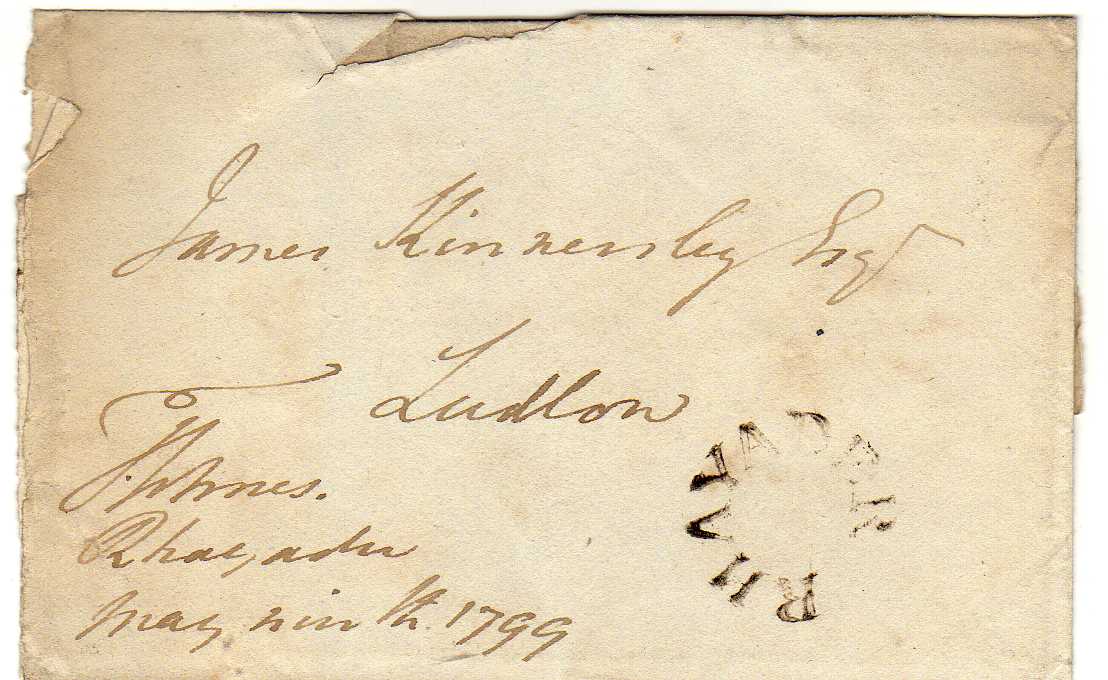 James Kinnersley Esqr
Ludlow
T. Johnes.
Rhayader
May ninth. 1799
RHAYADER